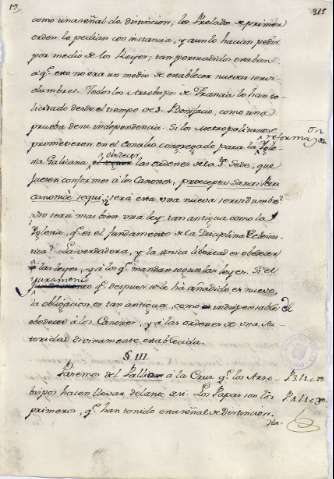 como una señal de distincion; los Prelados de primera
orden lo pedian con instancia, y aun lo hacian pedir
por medio de los Reyes; tan persuadidos estaban
a qe esto no era un medio de establecer nuevas servi-
dumbres. Todos los Arzobispos de Francia lo han so-
licitado desde el tiempo de S. Bonifacio, como una
prueba de su independencia. Si los Metropolitanos
prometieron en el Concilio congregado para la reforma de la
Iglesia Galicana, obedecer las ordenes de la S. Sede, que
fuesen conformes a los Canones, præcepta Sancti Petri
canonicè sequi, será esta una nueva servidumbre?
No será mas bien una ley tan antigua como la
Iglesia, qe es el fundamento de la Disciplina Eclesias-
tica? La verdadera, y la unica libertad es obedecer
a las leyes, y a los qe mandan segun las leyes. Si el
juramento qe despues se le ha añadido es nuevo,
la obligacion es tan antigua, como indispensable de
obedecer á los Canones, y á las ordenes de una Au-
toridad divinamente establecida.
§ III.
Pasemos del Palio á la Cruz qe los Arzo-
bispos hacen llevar delante de si. Los Papas son los
primeros, qe han tenido esta señal de distincion.